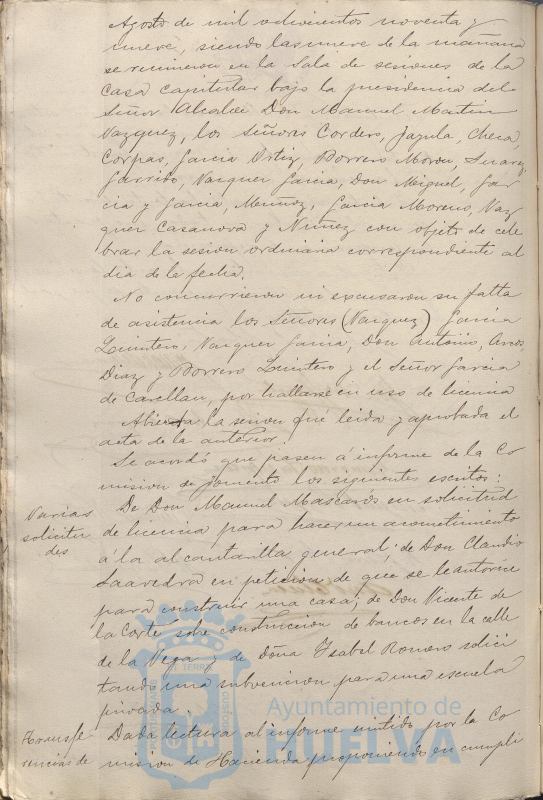 Agosto de mil ochocientos noventa y
nueve, siendo las nueve de la mañana
se reunieron en la Sala de sesiones de la
Casa capitular bajo la presidencia del
Señor Alcalde Don Manuel Martin
Vazquez, los Señores Cordero, Jazula, Checa,
Corpas, Garcia Ortiz, Borrero Moron, Suarez,
Garrido, Vazquez Garcia, Don Miguel, Gar
cia y Garcia, Muñoz, Garcia Moreno, Vaz
quez Casanova y Nuñez con objeto de cele
brar la sesion ordinaria correspondiente al
dia de la fecha.
No concurrieron ni excusaron su falta
de asistencia los Señores (Vazquez) Garcia
Quintero, Vazquez Garcia, Don Antonio, Arcos,
Diaz y Borrero Quintero y el Señor Garcia
de Castellan, por hallarse en uso de licencia
Abierta la sesion fue leida y aprobada el
acta de la anterior
Se acordó que pasen á informe de la Co
mision de fomento los siguientes escritos:
Varias
solicitu
des
De Don Manuel Mascarós en solicitud
de licencia para hacer un acometimiento
á la alcantarilla general; de Don Claudio
Saavedra en peticion de que se le autorice
para construir una casa; de Don Vicente de
la Corte sobre construccion de bancos en la calle
de la Vega y de Doña Isabel Romero solici
tando una subvencion para una escuela
privada.
Transfe
rencias de
Dada lectura al informe emitido por la Co
mision de Hacienda proponiendo en cumpli
Ayuntamiento de
HUELVA